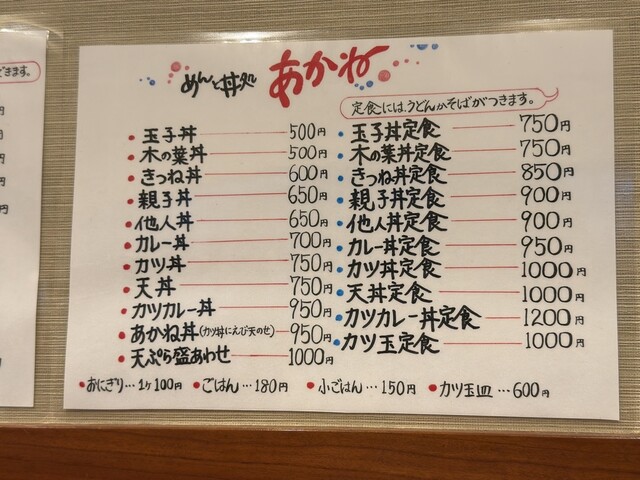 できます。
円
円
円
円
円
めんと丼処 あかね
定食には、うどんかそばがつきます。
玉子丼 500円
木の葉丼 500円
きつね丼 600円
親子丼 650円
他人丼 650円
カレー丼 700円
カツ丼 750円
天丼 750円
カツカレー丼 950円
あかね丼(カツ丼にえび天のせ) 950円
天ぷら盛あわせ 1000円
玉子丼定食 750円
木の葉丼定食 750円
きつね丼定食 850円
親子丼定食 900円
他人丼定食 900円
カレー丼定食 950円
カツ丼定食 1000円
天丼定食 1000円
カツカレー丼定食 1200円
カツ玉定食 1000円
おにぎり…1ヶ100円 ごはん…180円 小ごはん…150円 カツ玉皿…600円